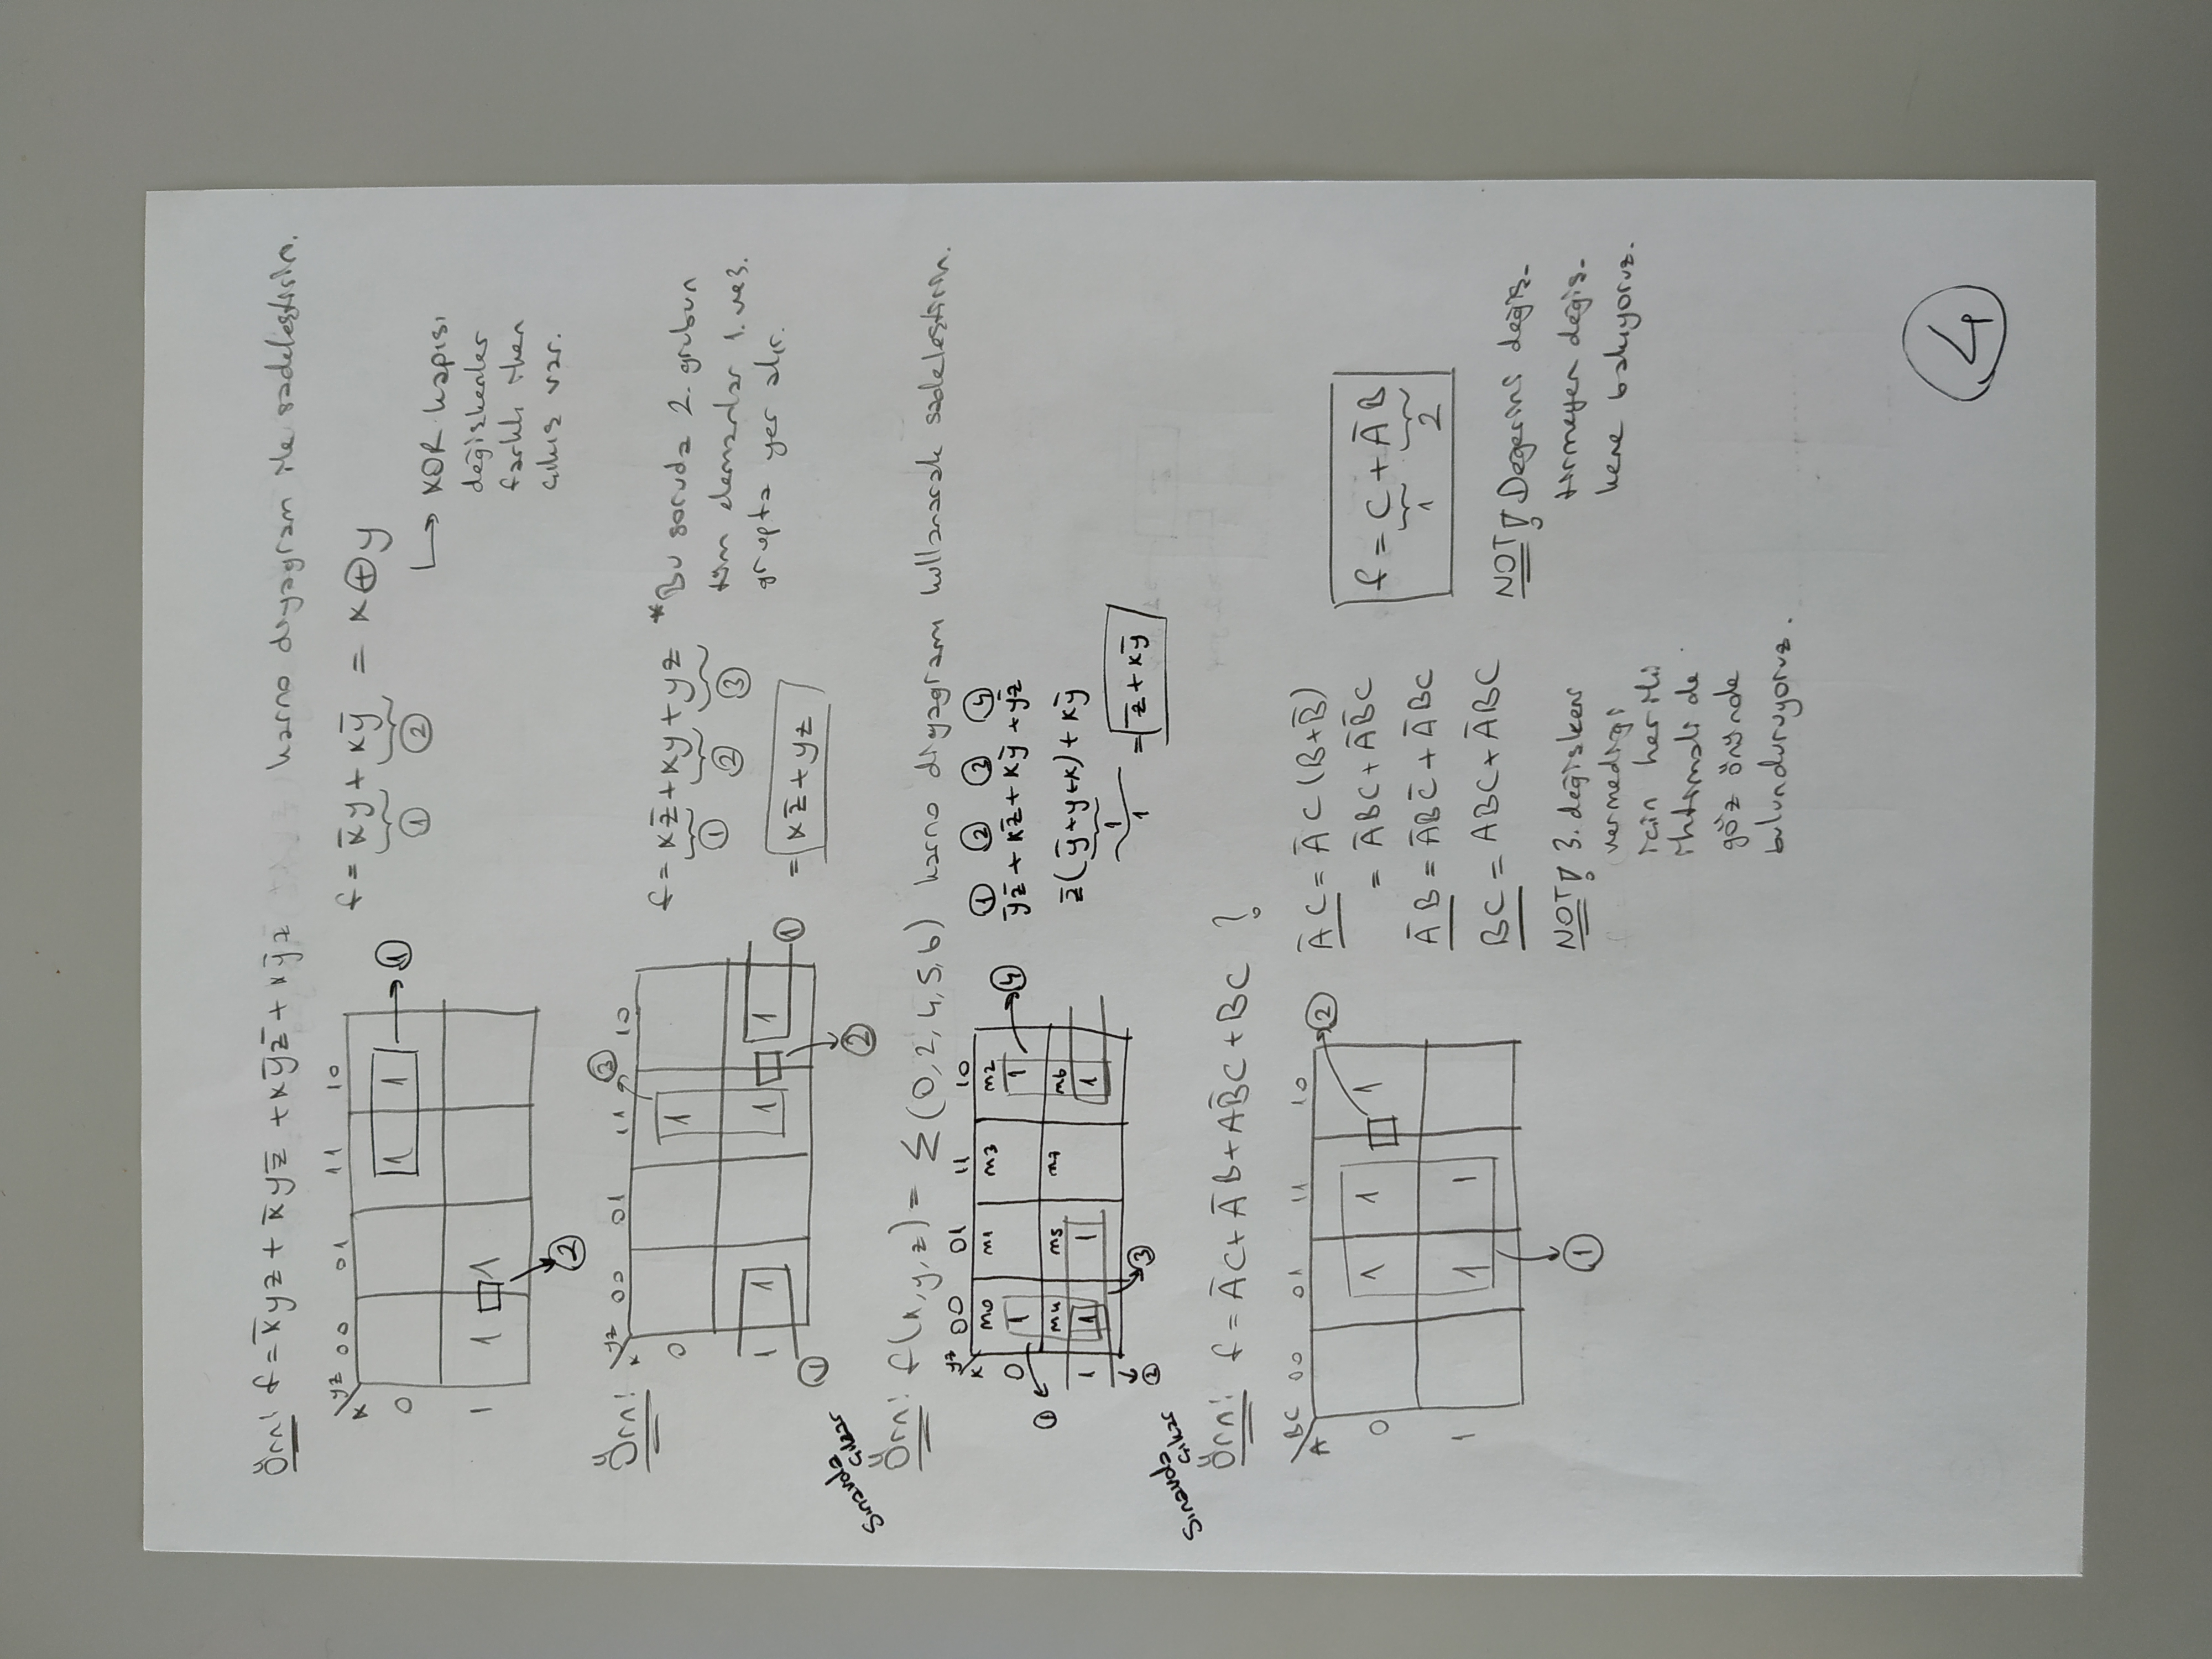 Örn! f = x̄yz + x̄yz̄ + xȳz̄ + xȳz karno diyagram ile sadeleştirin.
x yz 00 01 11 10
0 1 1 → ①
1 1 1
②
f = x̄y + xȳ = x⊕y
① ②
↳ XOR kapısı
değişkenler
farklı iken
çıkış var.
Örn! x yz 00 01 11 10
③
0 1
1 1 1 1
① ①
②
f = xz̄ + xy + yz
① ② ③
= xz̄ + yz
*Bu soruda 2. grubun
tüm elemanlar 1. ve 3.
grupta yer alır.
Sınavda
çıkar
Örn! f(x,y,z) = Σ(0,2,4,5,6) karno diyagramı kullanarak sadeleştirin.
x yz 00 01 11 10
m0 m1 m3 m2
0 1 1 → ④
①
m4 m5 m7 m6
1 1 1 1
② ③
① ② ③ ④
ȳz̄ + xz̄ + xȳ + yz̄
z̄(ȳ+y+x) + xȳ
1
1
= z̄ + xȳ
Sınavda
çıkar
Örn! f = ĀC + ĀB + AB̄C + BC ?
A BC 00 01 11 10
②
0 1 1 1
1 1 1
①
ĀC = ĀC(B+B̄)
= ĀBC + ĀB̄C
ĀB = ĀBC̄ + ĀBC
BC = ABC + ĀBC
f = C + ĀB
1 2
NOT! 3. değişken
vermediği
için her iki
ihtimali de
göz önünde
bulunduruyoruz.
NOT! Değerini değiş-
tirmeyen değiş-
kene bakıyoruz.
4